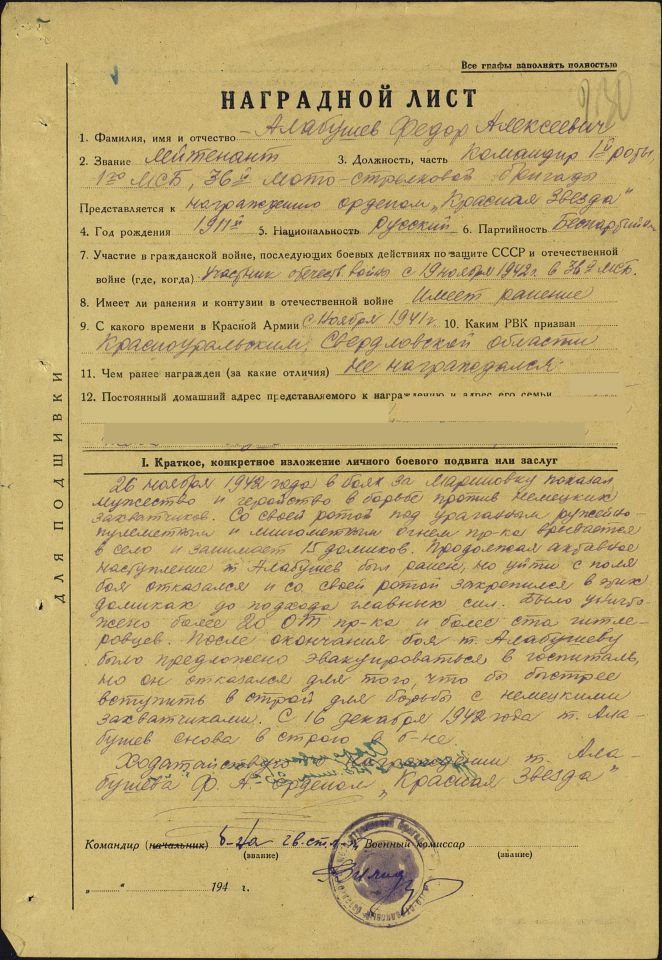 Все графы заполнять полностью
230
НАГРАДНОЙ ЛИСТ
1. Фамилия, имя и отчество Алабушев Федор Алексеевич
2. Звание Лейтенант 3. Должность, часть Командир 1й роты,
1го МСБ, 36й Мото-стрелковой бригады
Представляется к награждению орденом „Красная Звезда"
4. Год рождения 1911й 5. Национальность Русский 6. Партийность Беспартийн
7. Участие в гражданской войне, последующих боевых действиях по защите СССР и отечественной
войне (где, когда) Участник отечеств войны с 19 ноября 1942 г. в 36й МСБ.
8. Имеет ли ранения и контузии в отечественной войне Имеет ранение
9. С какого времени в Красной Армии с Ноября 1941 г. 10. Каким РВК призван
Красноуральским, Свердловской области
11. Чем ранее награжден (за какие отличия) Не награждался.
12. Постоянный домашний адрес представляемого к награждению и адрес его семьи
ДЛЯ ПОДШИВКИ
I. Краткое, конкретное изложение личного боевого подвига или заслуг
26 ноября 1942 года в боях за Мариновку показал
мужество и геройство в борьбе против немецких
захватчиков. Со своей ротой под ураганным ружейно-
пулеметным и минометным огнем пр-ка врывается
в село и занимает 15 домиков. Продолжая активное
наступление т Алабушев был ранен, но уйти с поля
боя отказался и со своей ротой закрепился в этих
домиках до подхода главных сил. Было уничто-
жено более 20 ОТ пр-ка и более ста гитле-
ровцев. После окончания боя т. Алабушеву
было предложено эвакуироваться в госпиталь,
но он отказался для того, что бы быстрее
вступить в строй для борьбы с немецкими
захватчиками. С 16 декабря 1942 года т. Ала-
бушев снова в строю в б-не.
Ходатайствую о награждении т. Ала-
бушева Ф. А. орденом „Красная Звезда"
Командир (начальник) б-на гв. ст. л-т Военный комиссар
(звание) (звание)
„ " 194 г.